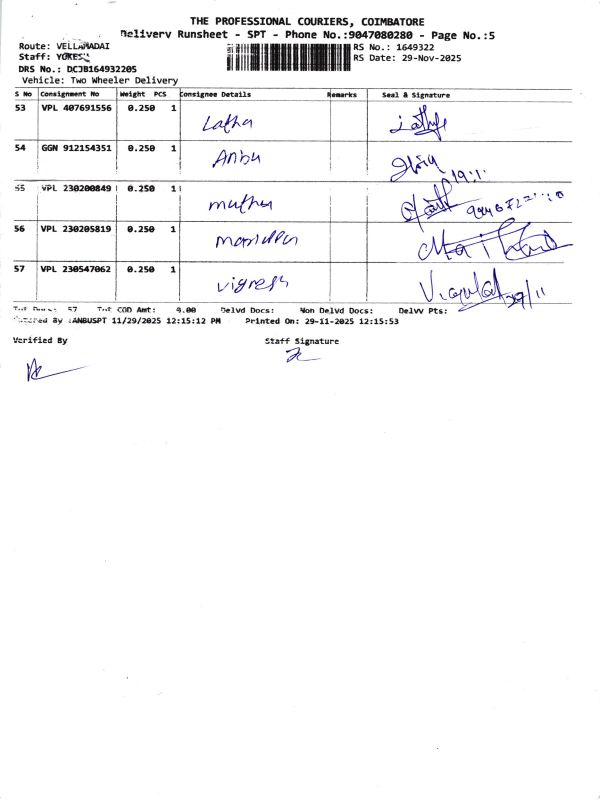 THE PROFESSIONAL COURIERS, COIMBATORE
Delivery Runsheet - SPT - Phone No.:9047080280 - Page No.:5
Route: VELLAMADAI
RS No.: 1649322
Staff: YOKESH
RS Date: 29-Nov-2025
DRS No.: DCJB164932205
Vehicle: Two Wheeler Delivery
S No Consignment No Weight PCS Consignee Details Remarks Seal & Signature
53 VPL 407691556 0.250 1 Latha
54 GGN 912154351 0.250 1 Anbu
55 VPL 230200849 0.250 1 muthu
56 VPL 230205819 0.250 1
57 VPL 230547062 0.250 1 vignesh
Tot Docs: 57 Tot COD Amt: 0.00 Delvd Docs: Non Delvd Docs: Delvv Pts:
Entered By :ANBUSPT 11/29/2025 12:15:12 PM Printed On: 29-11-2025 12:15:53
Verified By Staff Signature